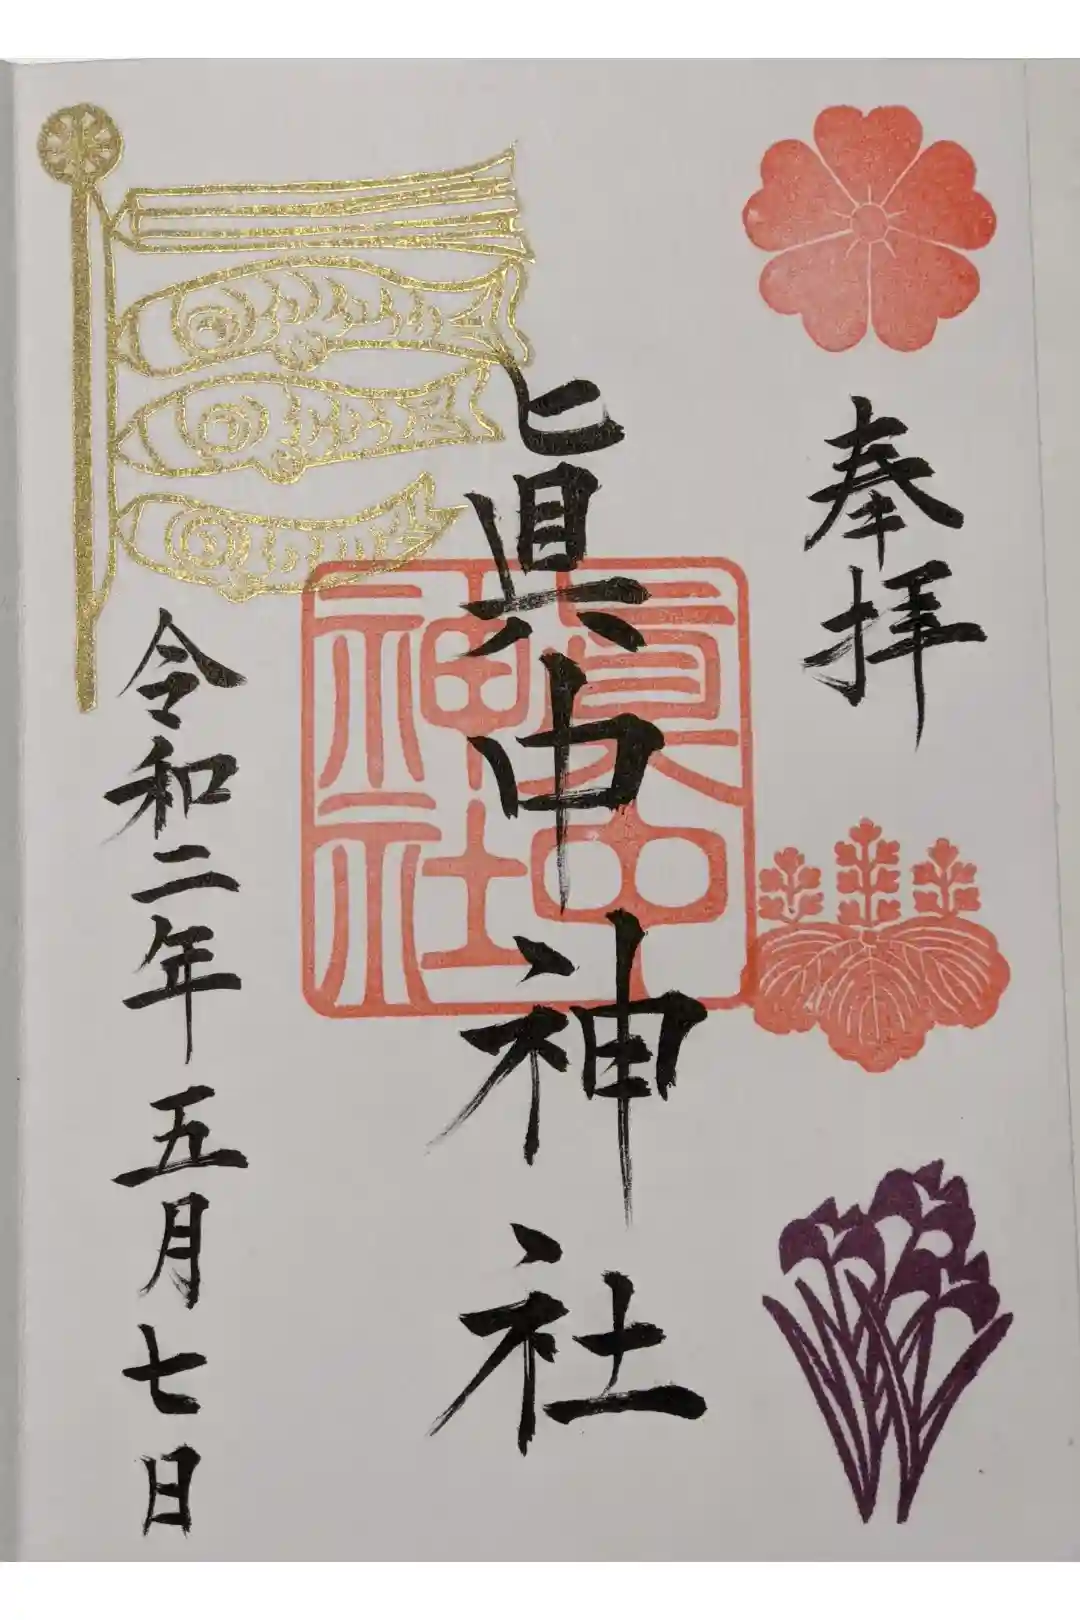 奉拝
眞中神社
眞中神社
令和二年五月七日